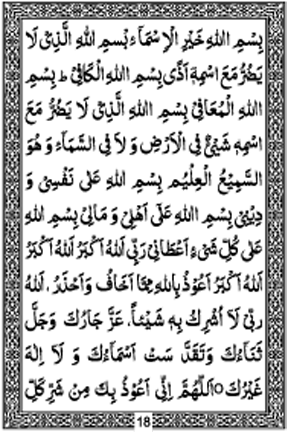 بِسْمِ اللهِ خَيْرِ الْاِسْمَآءِ بِسْمِ اللهِ الَّذِىْ لَا
يَضُرُّ مَعَ اسْمِهٖ اَذًى بِسْمِ اللهِ الْكَافِىْ ط بِسْمِ
اللهِ الْمُعَافِىْ بِسْمِ اللهِ الَّذِىْ لَا يَضُرُّ مَعَ
اسْمِهٖ شَيْئٌ فِى الْاَرْضِ وَلَا فِى السَّمَآءِ وَهُوَ
السَّمِيْعُ الْعَلِيْمُ بِسْمِ اللهِ عَلٰى نَفْسِىْ وَ
دِيْنِىْ بِسْمِ اللهِ عَلٰٓى اَهْلِىْ وَ مَالِىْ بِسْمِ اللهِ
عَلٰى كُلِّ شَىْءٍ اَعْطَانِىْ رَبِّىْ اَللهُ اَكْبَرُ اَللهُ اَكْبَرُ
اَللهُ اَكْبَرُ اَعُوْذُ بِاللهِ مِمَّا اَخَافُ وَاَحْذَرُ، اَللهُ
رَبِّىْ لَا اُشْرِكُ بِهٖ شَيْئًا، عَزَّ جَارُكَ وَجَلَّ
ثَنَاءُكَ وَتَقَدَّسَتْ اَسْمَاءُكَ وَ لَا اِلٰهَ
غَيْرُكَ ○ اَللّٰهُمَّ اِنِّىْ اَعُوْذُ بِكَ مِنْ شَرِّ كُلِّ
18